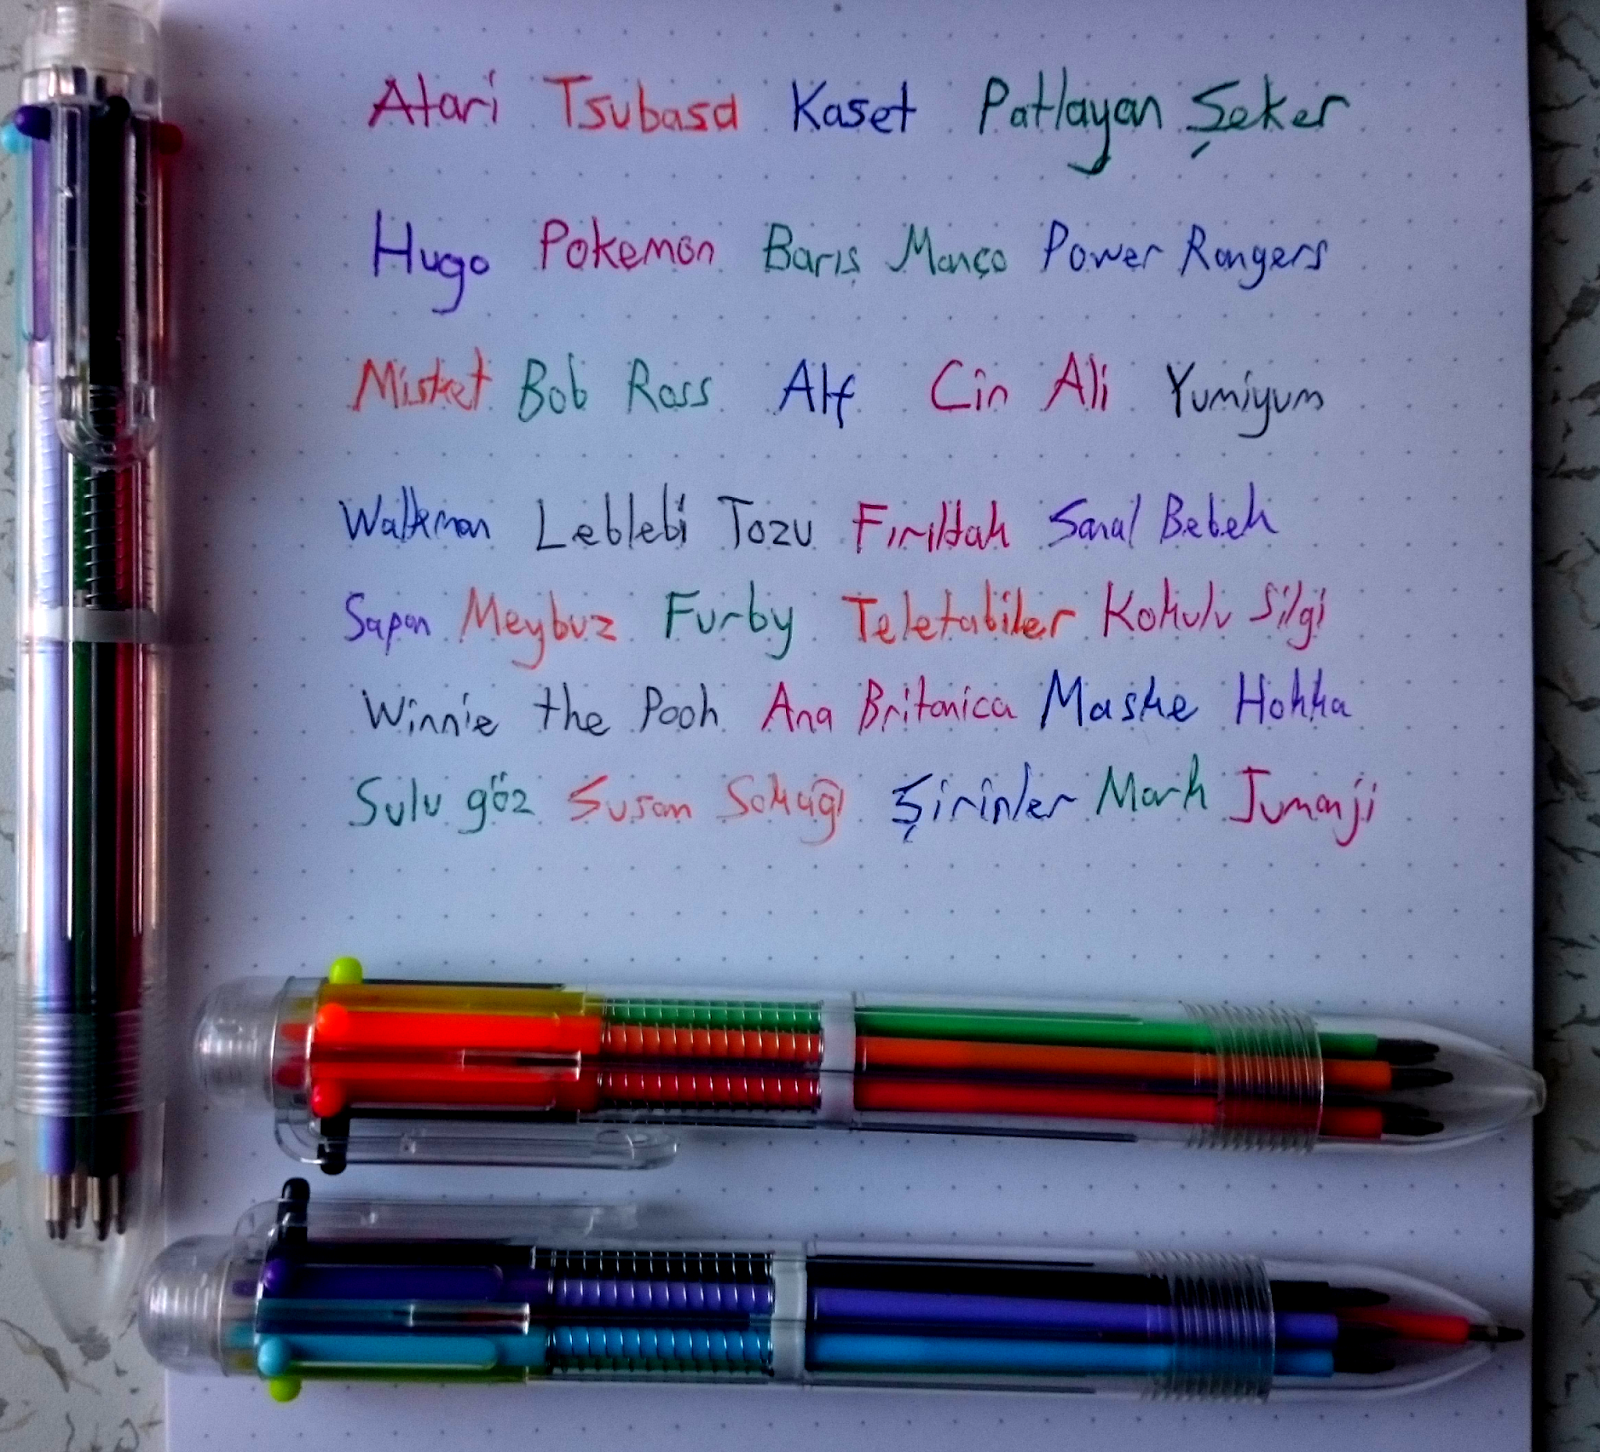 Atari Tsubasa Kaset Patlayan Şeker
Hugo Pokemon Barış Manço Power Rangers
Misket Bob Ross Alf Cin Ali Yumiyum
Walkman Leblebi Tozu Fırıldak Sanal Bebek
Sapan Meybuz Furby Teletabiler Kokulu Silgi
Winnie the Pooh Ana Britanica Maske Hokka
Sulu göz Susam Sokağı Şirinler Mark Jumanji